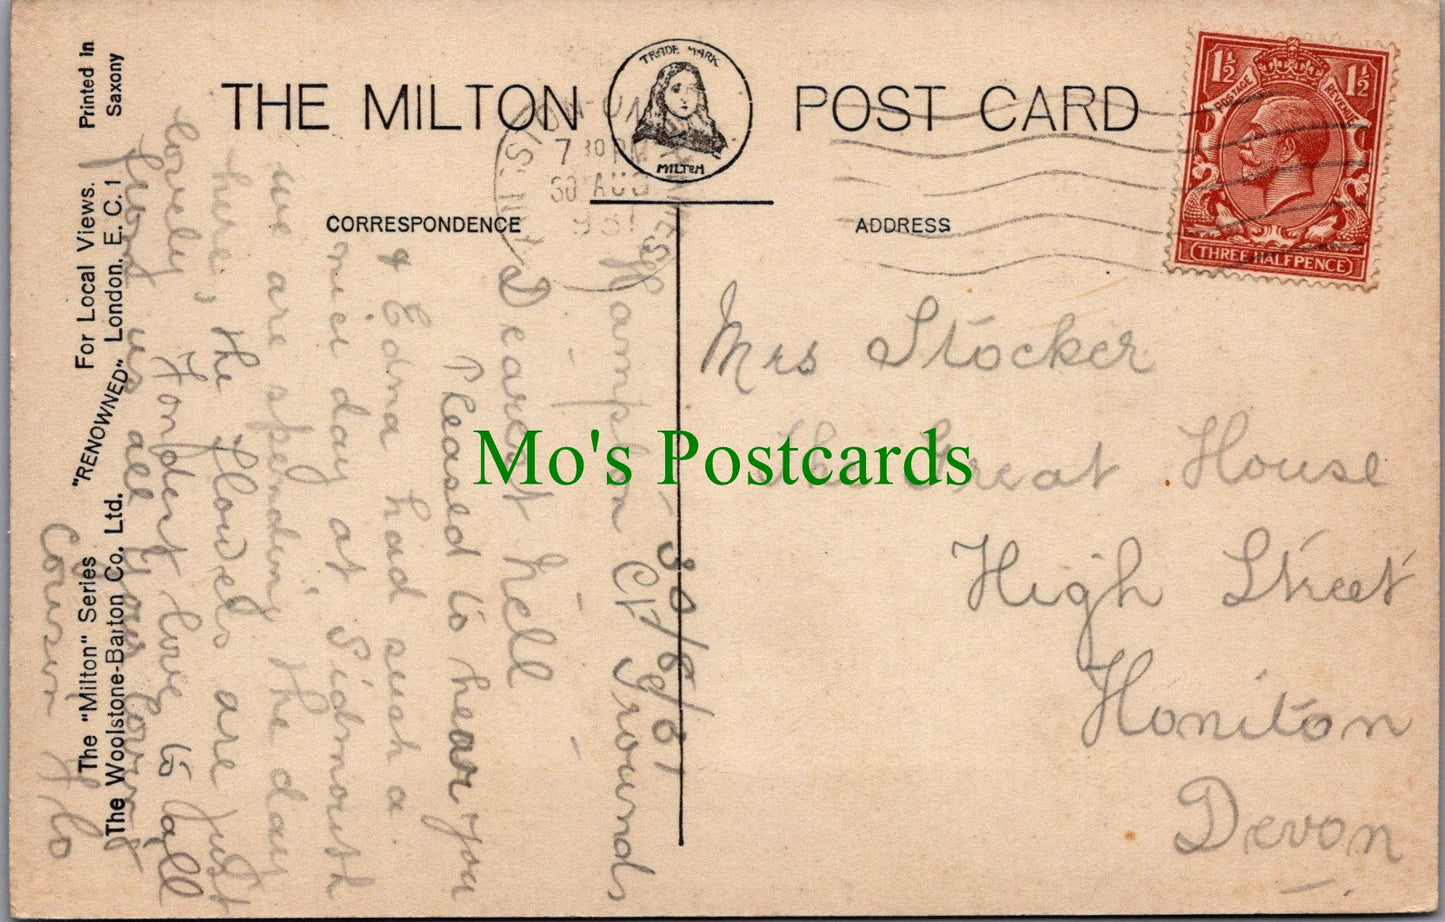 THE MILTON POST CARD
TRADE MARK
MILTON
CORRESPONDENCE
ADDRESS
1½ 1½
POSTAGE REVENUE
THREE HALFPENCE
7 30 PM
30 AUG
Printed in
Saxony
For Local Views.
The "Milton" Series
"RENOWNED"
London, E. C. 1
The Woolstone-Barton Co. Ltd.
Hampton Ct Grounds
30/8/31
Dearest Nell
Pleased to hear you
& Edna had such a
nice day at Sidmouth
we are spending the day
here, the flowers are just
lovely Fondest love to all
from us all your loving
Cousin Flo
Mrs Stocker
The Great House
High Street
Honiton
Devon
Mo's Postcards